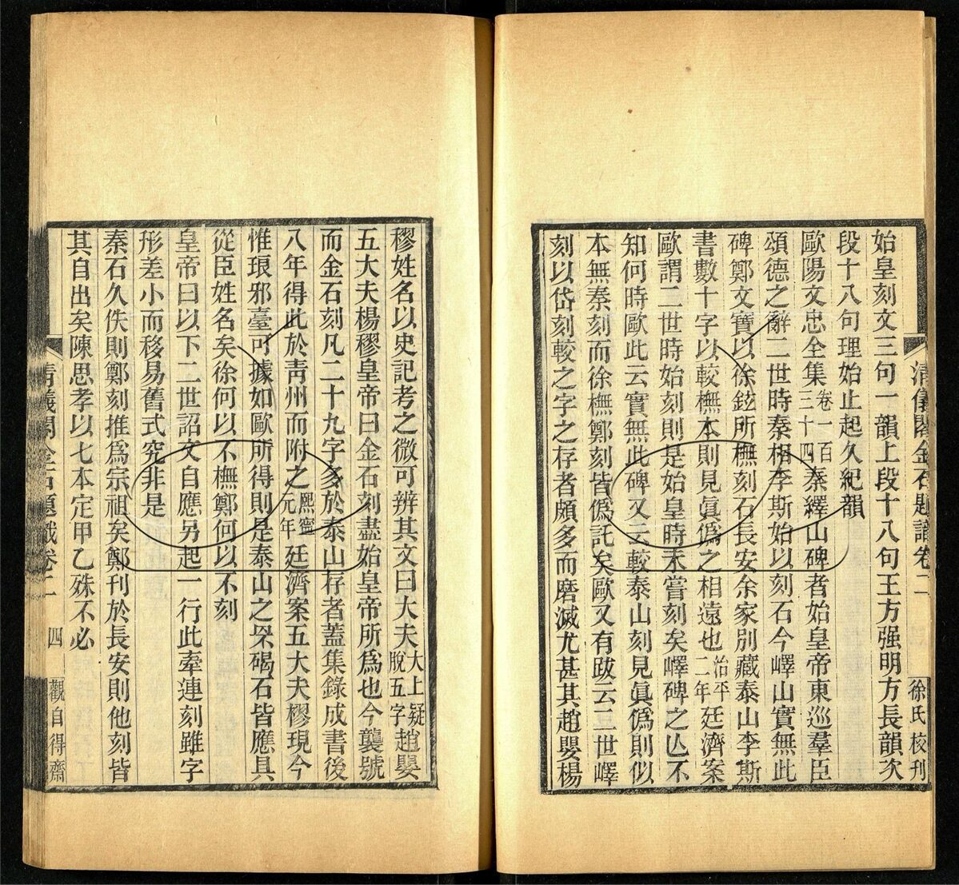 清儀閣金石題識卷二
徐氏校刊
始皇刻文三句一韻上段十八句王方强明方長韻次
段十八句理始止起久紀韻
歐陽文忠全集卷一百三十四秦繹山碑者始皇帝東巡羣臣
頌德之辭二世時秦相李斯始以刻石今嶧山實無此
碑鄭文寶以徐鉉所橅刻石長安余家別藏泰山李斯
書數十字以較橅本則見眞僞之相遠也治平二年廷濟案
歐謂二世時始刻則是始皇時未嘗刻矣嶧碑之亾不
知何時歐此云實無此碑又云較泰山刻見眞僞則似
本無秦刻而徐橅鄭刻皆僞託矣歐又有跋云二世嶧
刻以岱刻較之字之存者頗多而磨滅尤甚其趙嬰楊
穆姓名以史記考之微可辨其文曰大夫大上疑脫五字趙嬰
五大夫楊穆皇帝曰金石刻盡始皇帝所爲也今襲號
而金石刻凡二十九字多於泰山存者葢集錄成書後
八年得此於青州而附之熙寧元年廷濟案五大夫穆現今
惟琅邪臺可據如歐所得則是泰山之𣎴碣石皆應具
從臣姓名矣徐何以不橅鄭何以不刻
皇帝曰以下二世詔文自應另起一行此牽連刻雖字
形差小而移易舊式究非是
秦石久佚則鄭刻推爲宗祖矣鄭刊於長安則他刻皆
其自出矣陳思孝以七本定甲乙殊不必
清儀閣金石題識卷二
四
觀自得齋